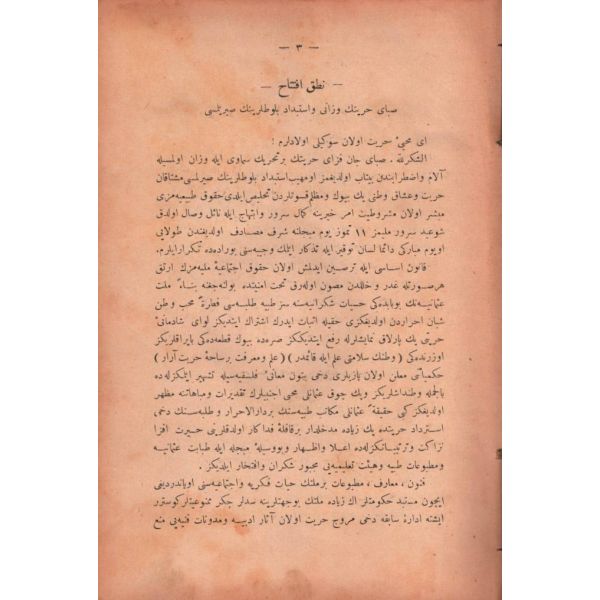 — ٣ —
— نطق افتتاح —
صبای حریتك وزانی واستبداد بلوطلرینك صیریلمسی
ای محبیٴ حریت اولان سوكیلی اولادلرم !
الشكرلله . صبای جان فزای حریتك بر تحریك سماوی ایله وزان اولمسیله
آلام واضطرابندن بیتاب اولدیغمز اومهیب استبداد بلوطلرینك صیرلمسی مشتاقان
حریت وعشاق وطنی یك بیوك ومظلم قسوتلردن تخلیص ایلدی حقوق طبیعیه‌مزی
مبشر اولان مشروطیت امر خیرینه كمال سرور وابتهاج ایله نائل وصال اولدق
شو عید سرور ملیمز ١١ تموز یوم مبجلنه شرف مصادف اولدیغندن طولایی
او یوم مباركی دائما لسان توقیر ایله تذكار ایتمك وجیبه‌سنی بوراده‌ده تكرار ایلرم.
قانون اساسی ایله ترصین ایدلمش اولان حقوق اجتماعیهٔ ملیه‌مزك ارتق
هر صورتله غدر و خللدن مصون اوله‌رق تحت امنیتده بولنه‌جغنه بناءً ملت
عثمانیه‌نك بوبابده‌كی حسیات شكرانیه‌سنه سز طبیه طلبه‌سی فطرةً محب وطن
شبان احراردن اولدیغكزی حقیله اثبات ایدرك اشتراك ایتدیكز لوای شادمانیٴ
حریتی یك پارلاق نمایشلرله رفع ایتدیككز صره‌ده بیوك قطعه‌ده‌كی بایراقلریكز
اوزرنده‌كی ( وطنك سلامتی علم ایله قائمدر ) ( علم و معرفت برساحهٔ حریت آرار )
حكمیاتی معلن اولان یازیلری دخی بتون معانیٴ فلسفیه‌سیله تشهیر ایتمكزله‌ده
بالجمله وطنداشلریكز ویك چوق عثمانلی محبی اجنبیلرك تقدیرات ومباهاتنه مظهر
اولدیغكز كبی حقیقةً عثمانلی مكاتب طبیه‌سنك بر دارالاحرار و طلبه‌سنك دخی
استرداد حریتده یك زیاده مدخلدار بر قافلهٔ فداكار اولدقلرینی حیرت افزا
نزاكت و ترتیباتكزله‌ده اعلا واظهار وبووسیلهٔ مبجله ایله طبابت عثمانیه
ومطبوعات طبیه وهیئت تعلیمیه‌یی مجبور شكران وافتخار ایلدیكز .
فنون ، معارف ، مطبوعات بر ملتك حیات فكریه و اجتماعیه‌سنی اویاندردیغی
ایچون مستبد حكومتلر اك زیاده ملتك بوجهتلرینه سدلر چكر ممنوعیتلر كوسترر
ایشته ادارهٔ سابقه دخی مروج حریت اولان آثار ادبیه ومدونات فنیه‌یی منع